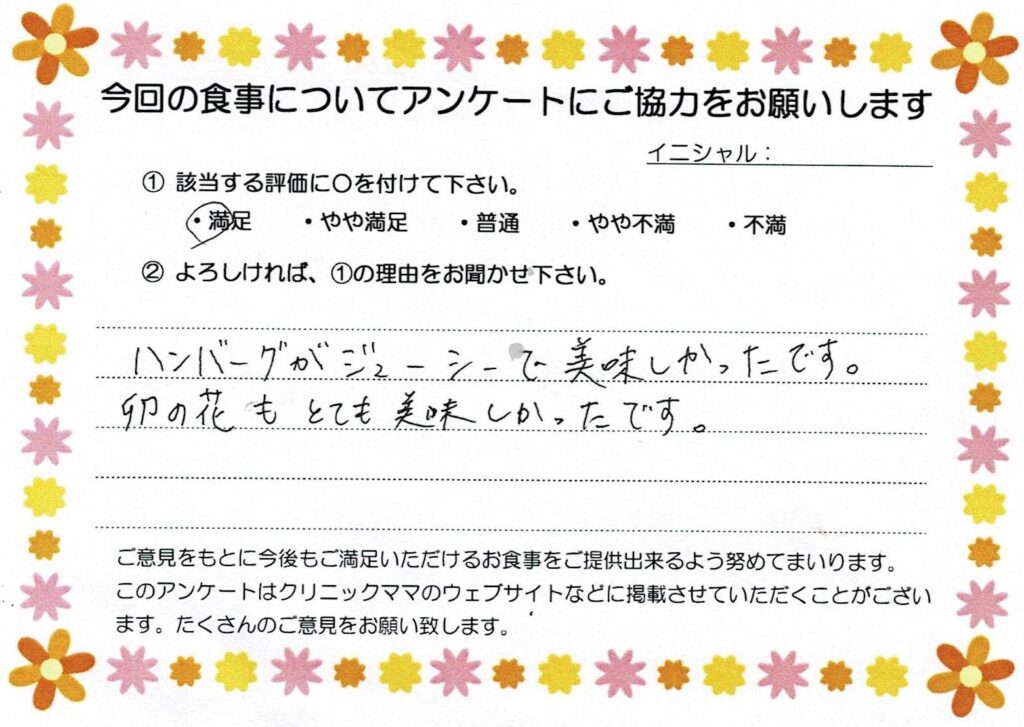 今回の食事についてアンケートにご協力をお願いします
イニシャル：
① 該当する評価に〇を付けて下さい。
・満足 ・やや満足 ・普通 ・やや不満 ・不満
② よろしければ、①の理由をお聞かせ下さい。
ハンバーグがジューシーで美味しかったです。
卯の花もとても美味しかったです。
ご意見をもとに今後もご満足いただけるお食事をご提供出来るよう努めてまいります。
このアンケートはクリニックママのウェブサイトなどに掲載させていただくことがござい
ます。たくさんのご意見をお願い致します。